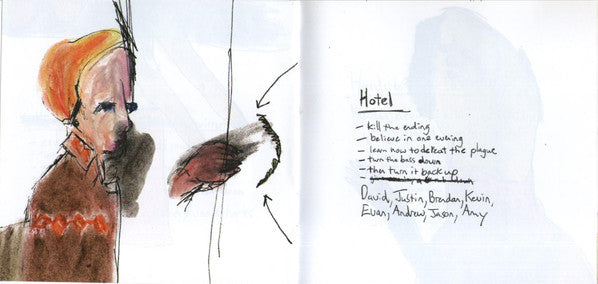 Hotel
- kill the ending
- believe in one evening
- learn how to defeat the plague
- turn the bass down
- then turn it back up
David, Justin, Brendan, Kevin,
Evan, Andrew, Jason, Amy